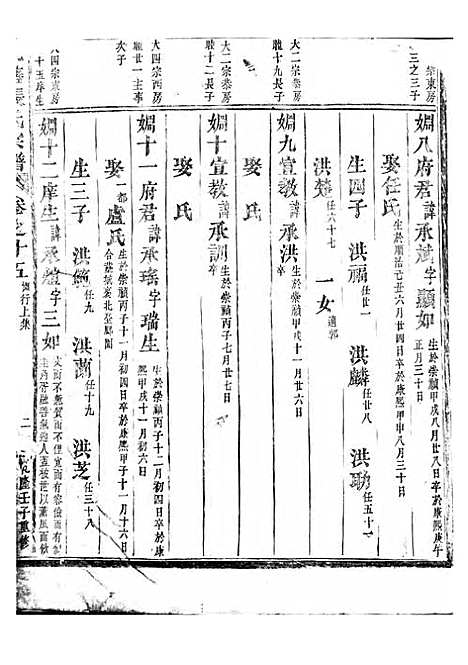 宗東房
三之三子
嫻八府君諱承斌字顯如
生於崇禎甲戌八月廿八日卒於康熙庚午
正月三十日
娶任氏
生於順治
六月廿四日卒於康熙甲申八月三十日
生四子 洪福任廿一 洪麟任廿八 洪勛任五十一
洪楚任六十七 一女適郭
大二宗泰房
職十九長子
嫻九宣教諱承洪生於崇禎甲戌十一月廿六日
娶氏
大二宗泰房
職十二長子
嫻十宣教諱承訓生於崇禎丙子七月廿七日
娶氏
大四宗西房
職廿一主奉
次子
嫻十一府君諱承瑤字瑞生
生於崇禎丙子十二月初四日卒於
熙甲戌十一月初六日
娶一都盧氏
生於崇禎丙子十一月初四日卒於康熙甲子十一月十六日
大四宗東房
十五庠生
嫻十二庠生諱承鎧字三如
生三子 洪 任九 洪蘭任十九 洪芝任三十八
宗譜
卷之十五
嫻行上集
二
乾隆壬子重修